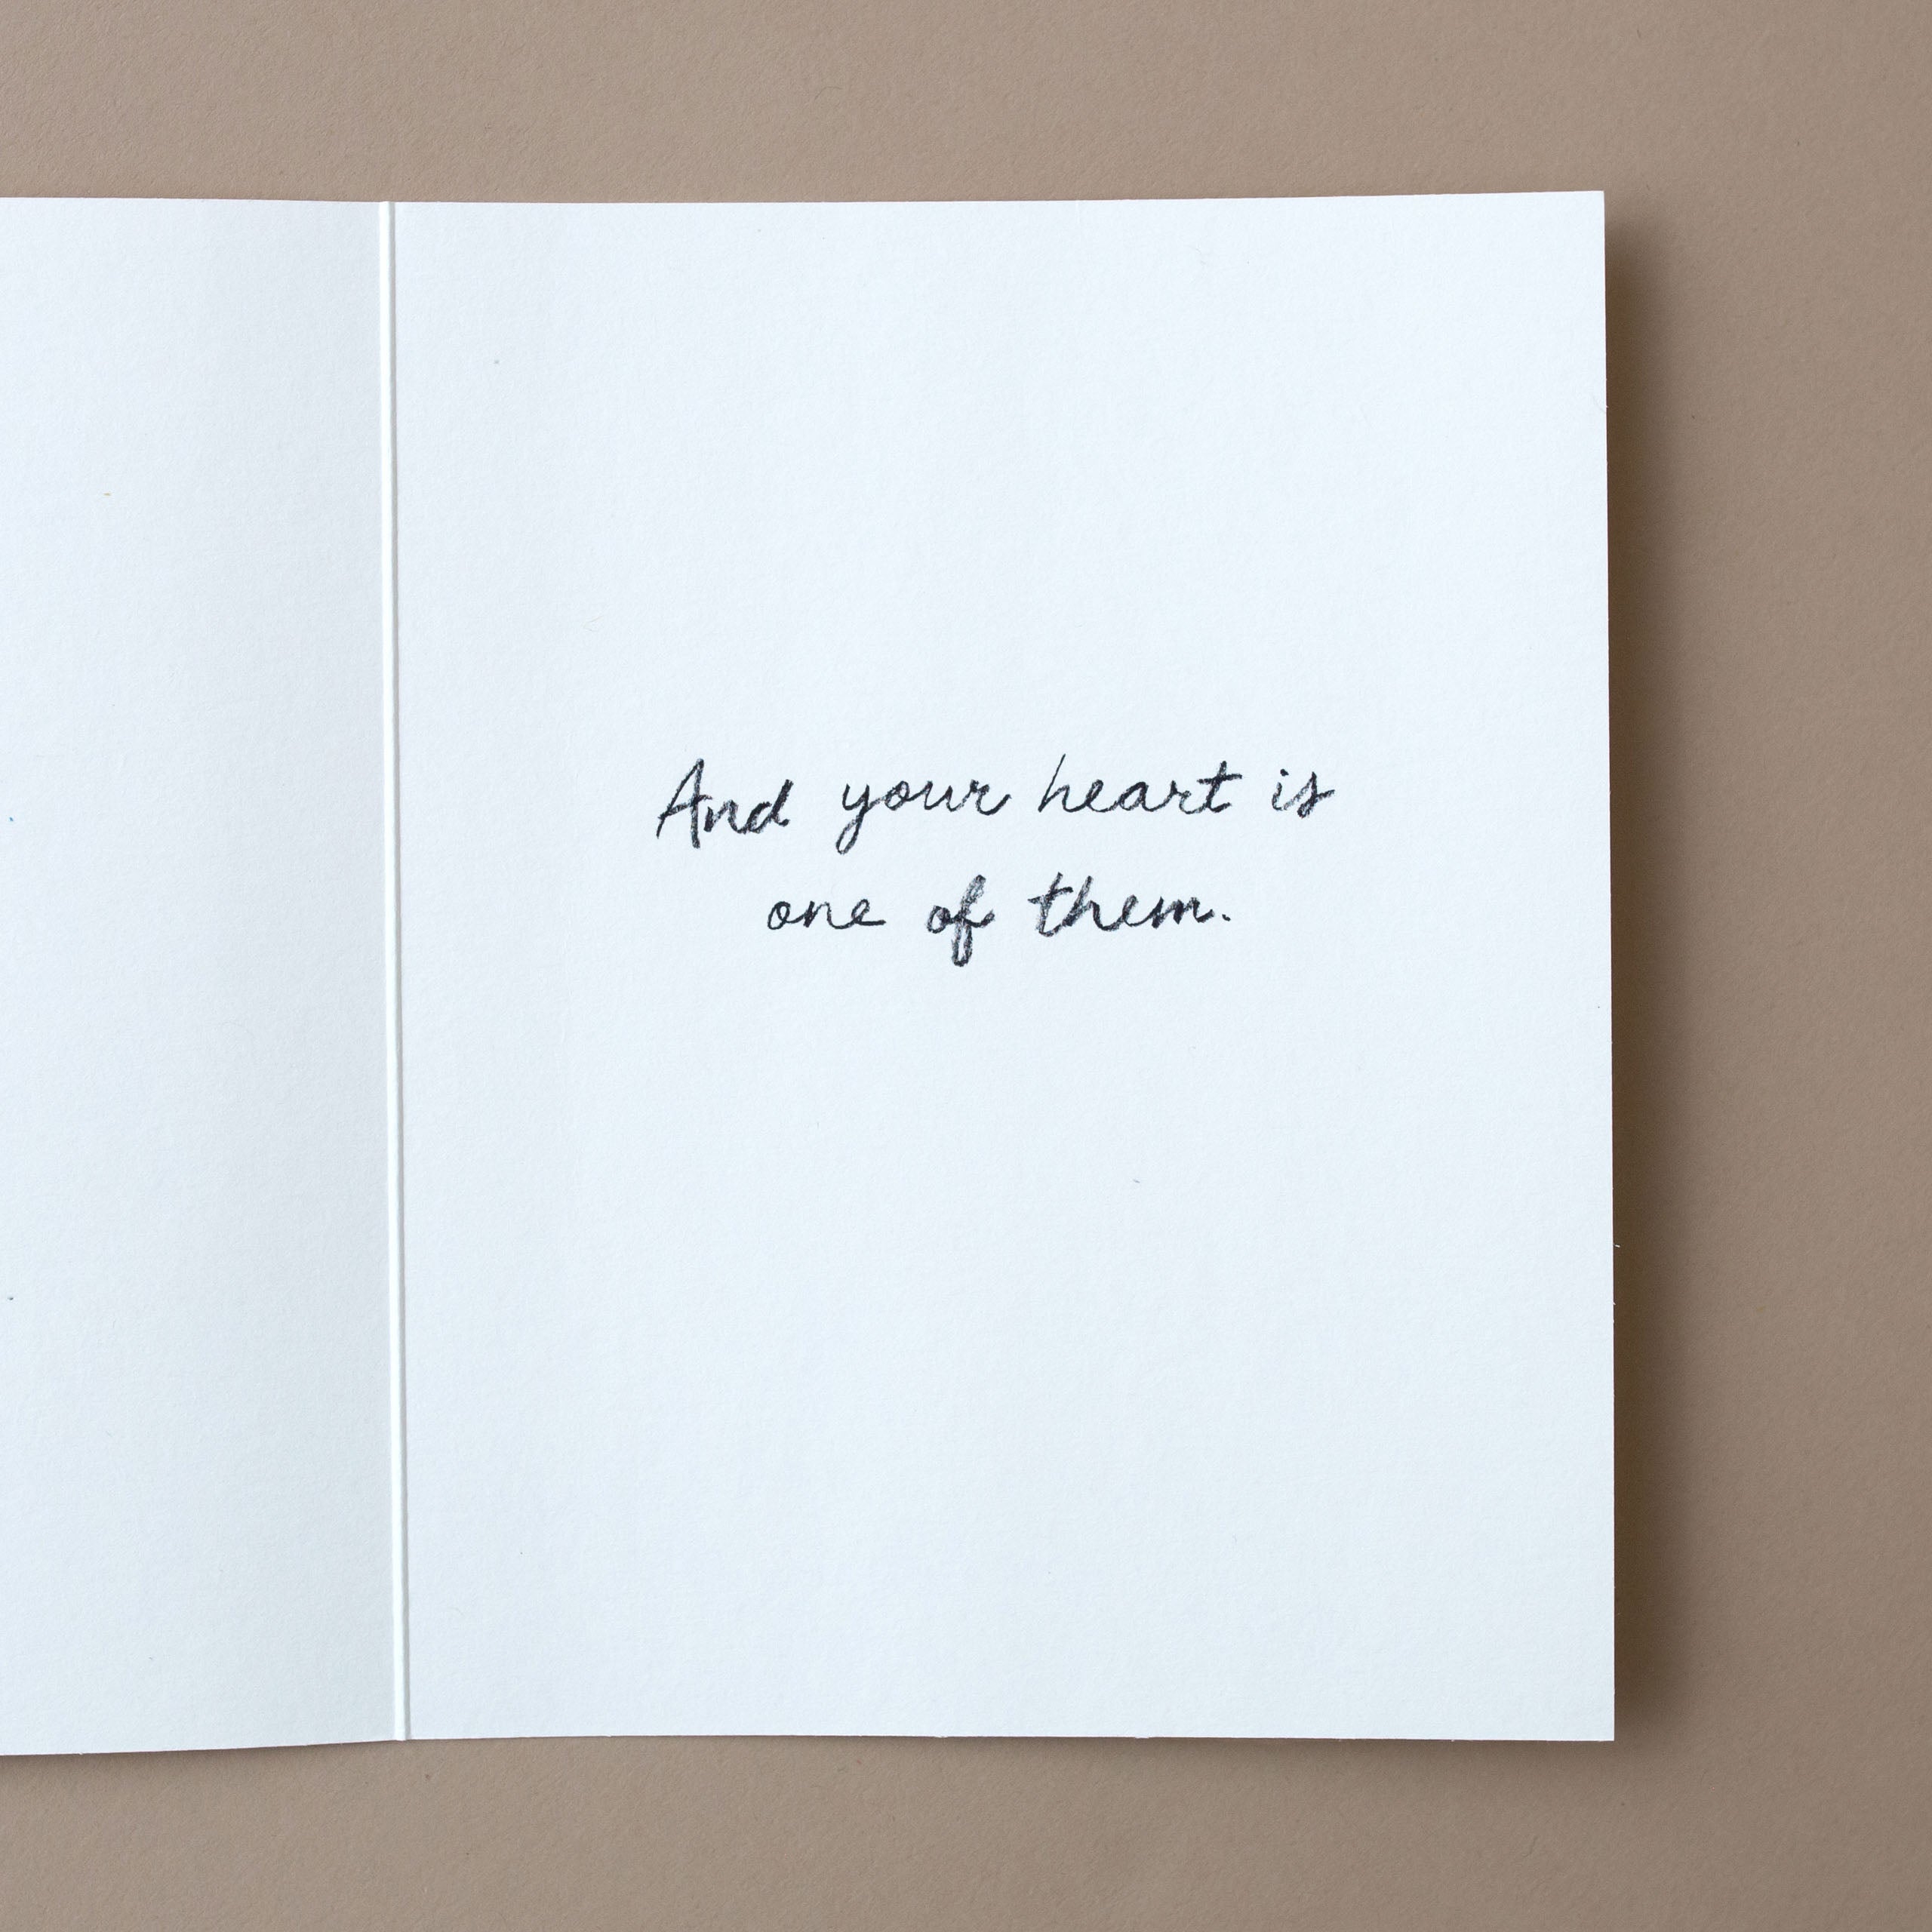 And your heart is
one of them.